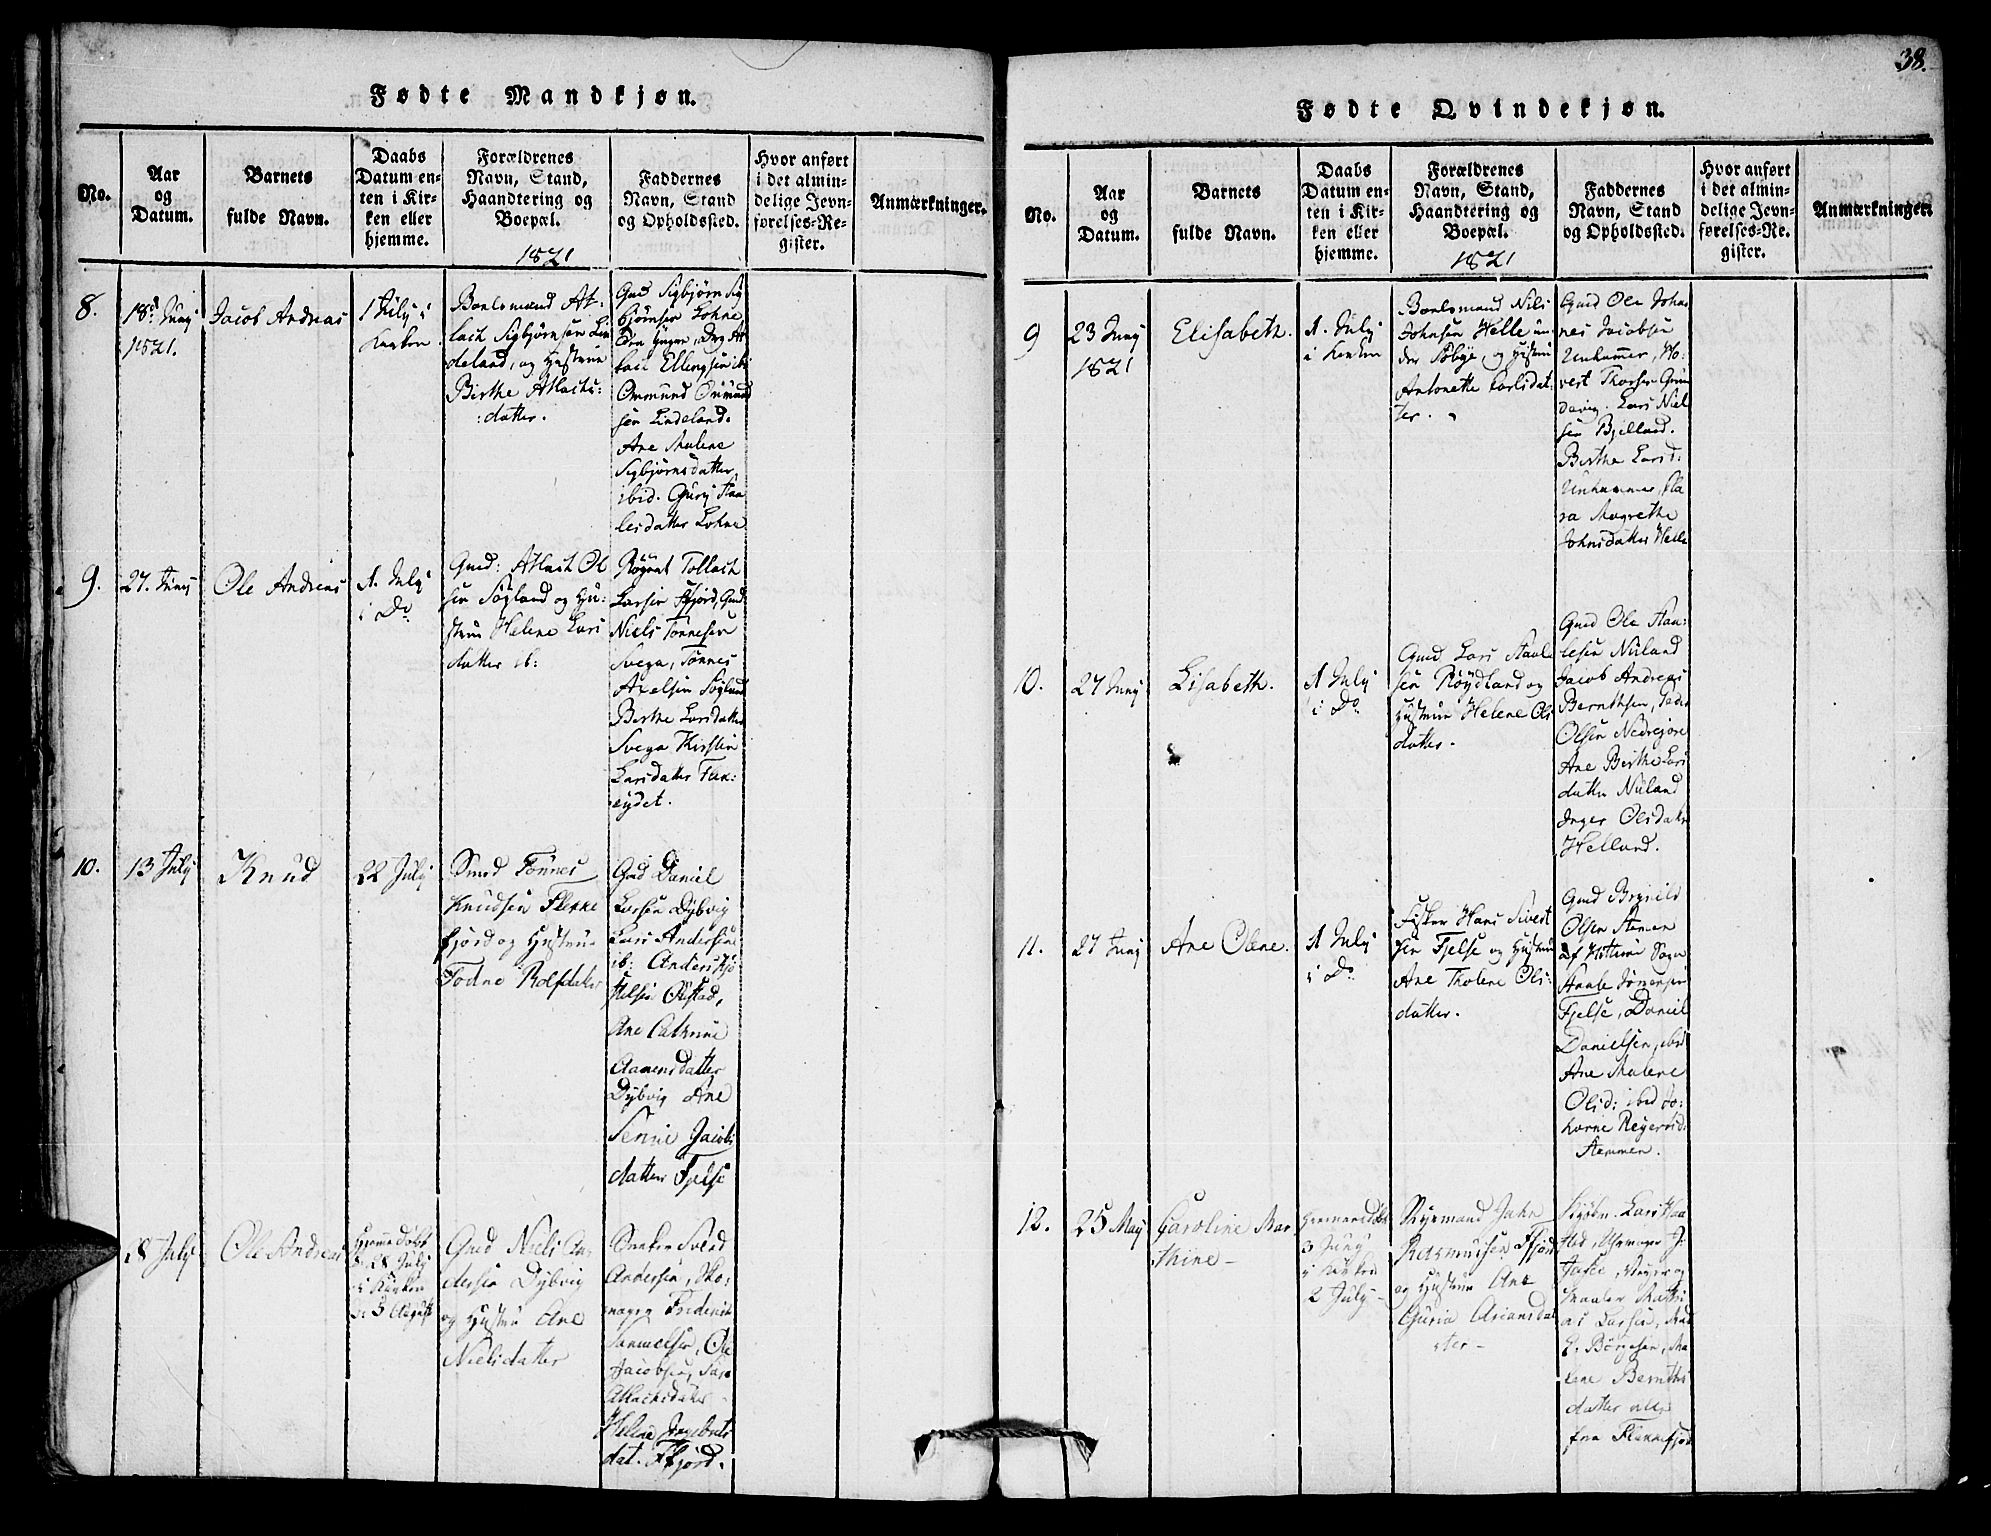 Fødte Mandkjøn.
No.
Aar
og
Datum.
Barnets
fulde Navn.
Daabs
Datum en-
ten i Kir-
ken eller
hjemme.
Forældrenes
Navn, Stand,
Haandtering og
Boepæl.
1821
Faddernes
Navn, Stand
og Opholdssted.
Hvor anført
i det almin-
delige Jevn-
førelses-Re-
gister.
Anmærkninger.
8.
18d Juny
1821.
Jacob Andreas
1 July i
Kirken
Boelsmand At-
lach Sigbjørnsen Lin
deland, og Hustrue
Birthe Atlachs-
datter.
Gmd Sigbjørn Sig
bjørnsen Lohne
Ellingsen ib:
Ommund Ommund
sen Lindeland.
Ane Malene
Sigbjørnsdatter
ibid. Gury Staa
lesdatter Lohne
9.
27. Juny
Ole Andreas
1. July
i Do
Gmd: Atlach Ol
sen Søgland og Hu-
strue Helene Lars
datter ib:
Tollach
Larsen Fjord, Gmd
Niels Tønnesen
Svega, Tønnes
Axelsen Søgland
Berthe Larsdatter
Svega Kirstin
Larsdatter Flik-
eydet.
10.
13 July
Knud
22 July
Smed Tønnes
Knudsen Flekke
fjord og Hustrue
Todne Rolfsdatter
Gmd Daniel
Larsen Dybvig
Lars Andersen
ib: Anders
Ane Cathrine
Aanensdatter
Dybvig Ane
Serine Jacobs
datter Fjelse
28 July
Ole Andreas
Hjemme Døbt
d. 28 July
i Kirken
d: 5 August
Gmd Niels An
dersen Dybvig
og Hustru Ane
Nielsdatter
Sneker Svend
Andersen, Sko-
mager Frederik
Samuelsen, Ole
Jacobsen, Sara
Atlachsdatter
Helene Ingebrets
dat. Ffjord.
38.
Fødte Qvindekjøn.
No.
Aar
og
Datum.
Barnets
fulde Navn.
Daabs
Datum en-
ten i Kir-
ken eller
hjemme.
Forældrenes
Navn, Stand,
Haandtering og
Boepæl.
1821
Faddernes
Navn, Stand
og Opholdssted.
Hvor anført
i det almin-
delige Jevn-
førelses-Re-
gister.
Anmærkninger.
9
23 Juny
1821
Elisabeth.
1. July
i Kirken
Boelsmand Niels
Johnsen Helle un
der Aabye, og Hustrue
Antonette Carlsdat-
ter.
Gmd Ole Johan
nes Jacobsen
Unhammer, Ho-
vert Thorsen Grun
devig. Lars Niel
sen Bjelland.
Birthe Larsd:
Unhammer, Kla
ra Magrethe
Johnsdatter Helle
10.
27 Juny
Lisabeth.
1 July
i Do
Gmd Lars Staale
sen Røydland og
Hustrue Helene Ols
datter.
Gmd Ole Staa-
lesen Nuland
Jacob Andreas
Bernthsen, Peder
Olsen Nedrejore
Ane Birthe Lars
datter Nuland
Inger Olsdatter
Helland.
11.
27 Juny
Ane Olene.
1 July
i Do
Fisker Hans Sivert
sen Fjelse og Hustrue
Ane Tholene Ols-
datter.
Gmd Brynild
Olsen Stemen
af Hitterøe Sogn
Staale Jørrensen
Fjelse, Daniel
Danielsen, ibid
Ane Malene
Olsd: ibid Jo-
hanne Reyersd:
Stemmen.
12.
25 May
Caroline Mar
thine
hjemmedøbt
3 Juny
i Kirken
2 July
Styrmand John
Rasmussen Ffjord
og Hustrue Ane
Guria Ariansdat
ter
Kjøbm. Lars Haa
stad, Uhrmager J.
Maaler Mathi
as Larsen, Mad
E. Börgesen, Ma
lene Bernths
datter alle
fra Flekkefjord